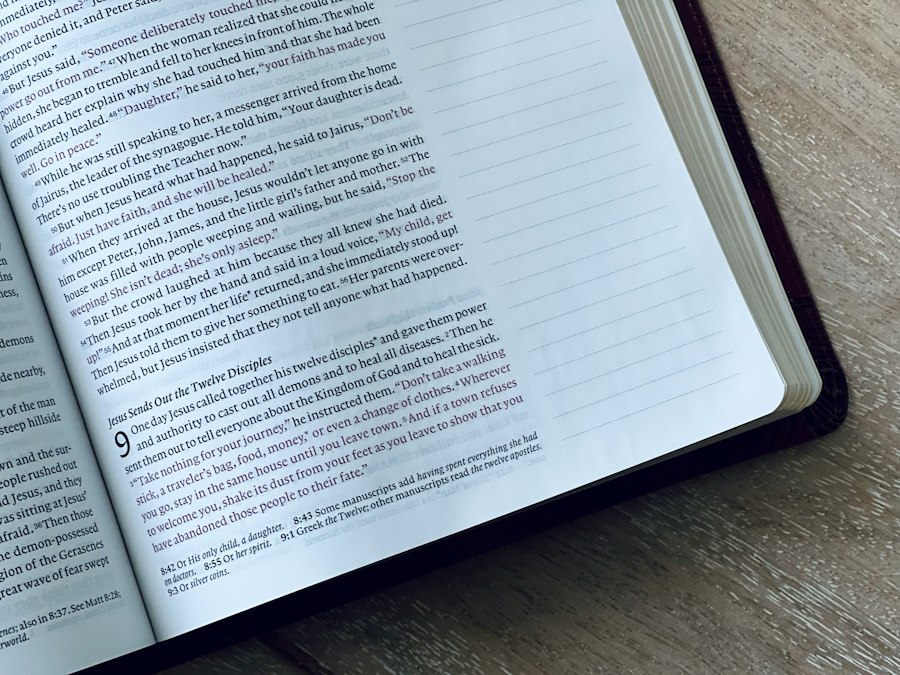 ness,
demons
de nearby,
t of the man
steep hillside
wn and the sur-
eople rushed out
d Jesus, and they
was sitting at Jesus’
afraid. 36Then those
he demon-possessed
gion of the Gerasenes
great wave of fear swept
enes; also in 8:37. See Matt 8:28;
rworld.
Who touched me?”
everyone denied it, and Peter said,
against you.”
46But Jesus said, “Someone deliberately touched me,
power go out from me.” 47When the woman realized that she could not
hidden, she began to tremble and fell to her knees in front of him. The whole
crowd heard her explain why she had touched him and that she had been
immediately healed. 48“Daughter,” he said to her, “your faith has made you
well. Go in peace.”
49While he was still speaking to her, a messenger arrived from the home
of Jairus, the leader of the synagogue. He told him, “Your daughter is dead.
There’s no use troubling the Teacher now.”
50But when Jesus heard what had happened, he said to Jairus, “Don’t be
afraid. Just have faith, and she will be healed.”
51When they arrived at the house, Jesus wouldn’t let anyone go in with
him except Peter, John, James, and the little girl’s father and mother. 52The
house was filled with people weeping and wailing, but he said, “Stop the
weeping! She isn’t dead; she’s only asleep.”
53But the crowd laughed at him because they all knew she had died.
54Then Jesus took her by the hand and said in a loud voice, “My child, get
up!” 55And at that moment her life* returned, and she immediately stood up!
Then Jesus told them to give her something to eat. 56Her parents were over-
whelmed, but Jesus insisted that they not tell anyone what had happened.
Jesus Sends Out the Twelve Disciples
9 One day Jesus called together his twelve disciples* and gave them power
and authority to cast out all demons and to heal all diseases. 2Then he
sent them out to tell everyone about the Kingdom of God and to heal the sick.
3“Take nothing for your journey,” he instructed them. “Don’t take a walking
stick, a traveler’s bag, food, money,* or even a change of clothes. 4Wherever
you go, stay in the same house until you leave town. 5And if a town refuses
to welcome you, shake its dust from your feet as you leave to show that you
have abandoned those people to their fate.”
8:42 Or His only child, a daughter. 8:43 Some manuscripts add having spent everything she had
on doctors. 8:55 Or her spirit. 9:1 Greek the Twelve; other manuscripts read the twelve apostles.
9:3 Or silver coins.